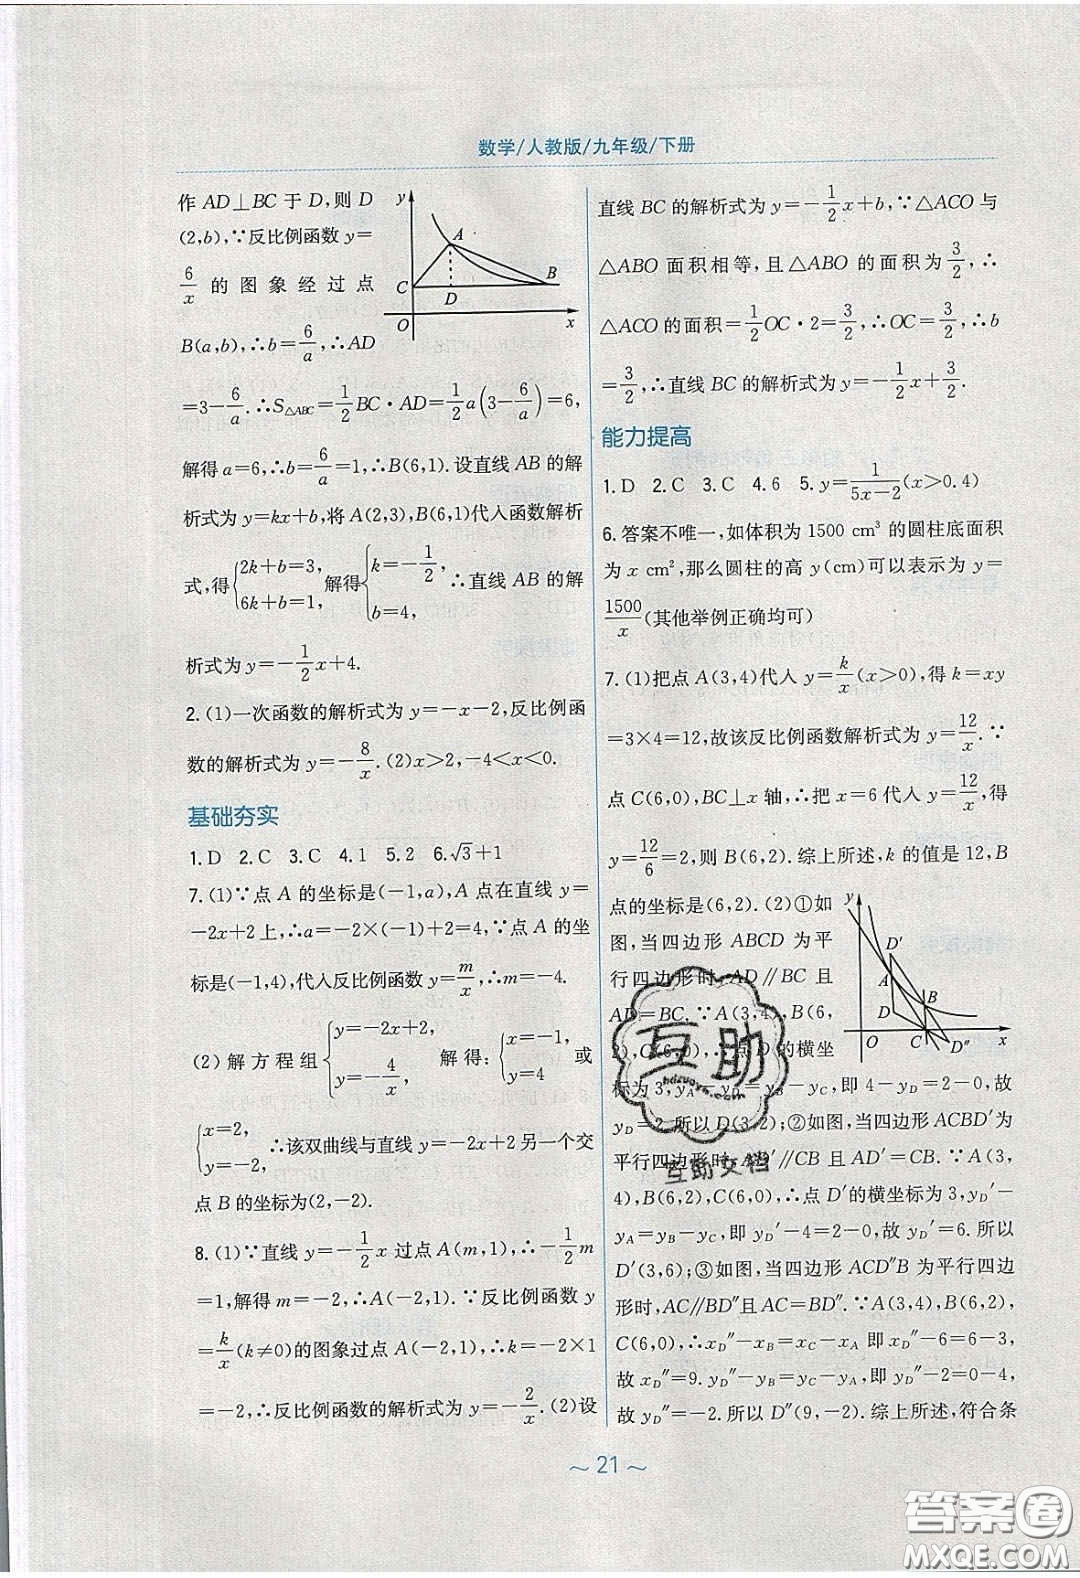 数学/人教版/九年级/下册
作 AD⊥BC 于 D,则 D
(2,b),∵反比例函数 y=
6/x 的图象经过点
B(a,b),∴b=6/a,∴AD
=3-6/a.∴S△ABC=1/2BC·AD=1/2a(3-6/a)=6,
解得 a=6,∴b=6/a=1,∴B(6,1).设直线 AB 的解
析式为 y=kx+b,将 A(2,3),B(6,1)代入函数解析
式,得{2k+b=3, 6k+b=1,解得{k=-1/2, b=4, ∴直线 AB 的解
析式为 y=-1/2x+4.
y
A
B
C
D
O
x
2.(1)一次函数的解析式为 y=-x-2,反比例函
数的解析式为 y=-8/x.(2)x>2,-4<x<0.
基础夯实
1.D 2.C 3.C 4.1 5.2 6.√3+1
7.(1)∵点 A 的坐标是(-1,a),A 点在直线 y=
-2x+2上,∴a=-2×(-1)+2=4,∴点 A 的坐
标是(-1,4),代入反比例函数 y=m/x,∴m=-4.
(2)解方程组{y=-2x+2, y=-4/x, 解得:{x=-1, y=4 或
{x=2, y=-2, ∴该双曲线与直线 y=-2x+2 另一个交
点 B 的坐标为(2,-2).
8.(1)∵直线 y=-1/2x 过点 A(m,1),∴-1/2m
=1,解得 m=-2,∴A(-2,1).∵反比例函数 y
=k/x(k≠0)的图象过点 A(-2,1),∴k=-2×1
=-2,∴反比例函数的解析式为 y=-2/x.(2)设
直线 BC 的解析式为 y=-1/2x+b,∵△ACO 与
△ABO 面积相等,且△ABO 的面积为3/2,∴
△ACO 的面积=1/2OC·2=3/2,∴OC=3/2,∴b
=3/2,∴直线 BC 的解析式为 y=-1/2x+3/2.
能力提高
1.D 2.C 3.C 4.6 5.y=1/(5x-2)(x>0.4)
6.答案不唯一,如体积为 1500 cm³ 的圆柱底面积
为 x cm²,那么圆柱的高 y(cm)可以表示为 y=
1500/x(其他举例正确均可)
7.(1)把点 A(3,4)代入 y=k/x(x>0),得 k=xy
=3×4=12,故该反比例函数解析式为 y=12/x.∵
点 C(6,0),BC⊥x 轴,∴把 x=6 代入 y=12/x,得
y=12/6=2,则 B(6,2).综上所述,k 的值是 12,B
点的坐标是(6,2).(2)①如
图,当四边形 ABCD 为平
行四边形时,AD∥BC 且
AD=BC.∵A(3,4),B(6,
2),C(6,0),∴点 D 的横坐
标为 3,yA-yD=yB-yC,即 4-yD=2-0,故
yD=2.所以 D(3,2);②如图,当四边形 ACBD′为
平行四边形时,AD′∥CB 且 AD′=CB.∵A(3,
4),B(6,2),C(6,0),∴点 D′的横坐标为 3,yD′-
yA=yB-yC,即 yD′-4=2-0,故 yD′=6.所以
D′(3,6);③如图,当四边形 ACD″B 为平行四边
形时,AC∥BD″且 AC=BD″.∵A(3,4),B(6,2),
C(6,0),∴xD″-xB=xC-xA 即 xD″-6=6-3,
故 xD″=9.yD″-yB=yC-yA,即 yD″-2=0-4,
故 yD″=-2.所以 D″(9,-2).综上所述,符合条
y
D′
A
B
D
O
C
D″
x
互助
互助文档
～21～
答案圈
MXQE.COM